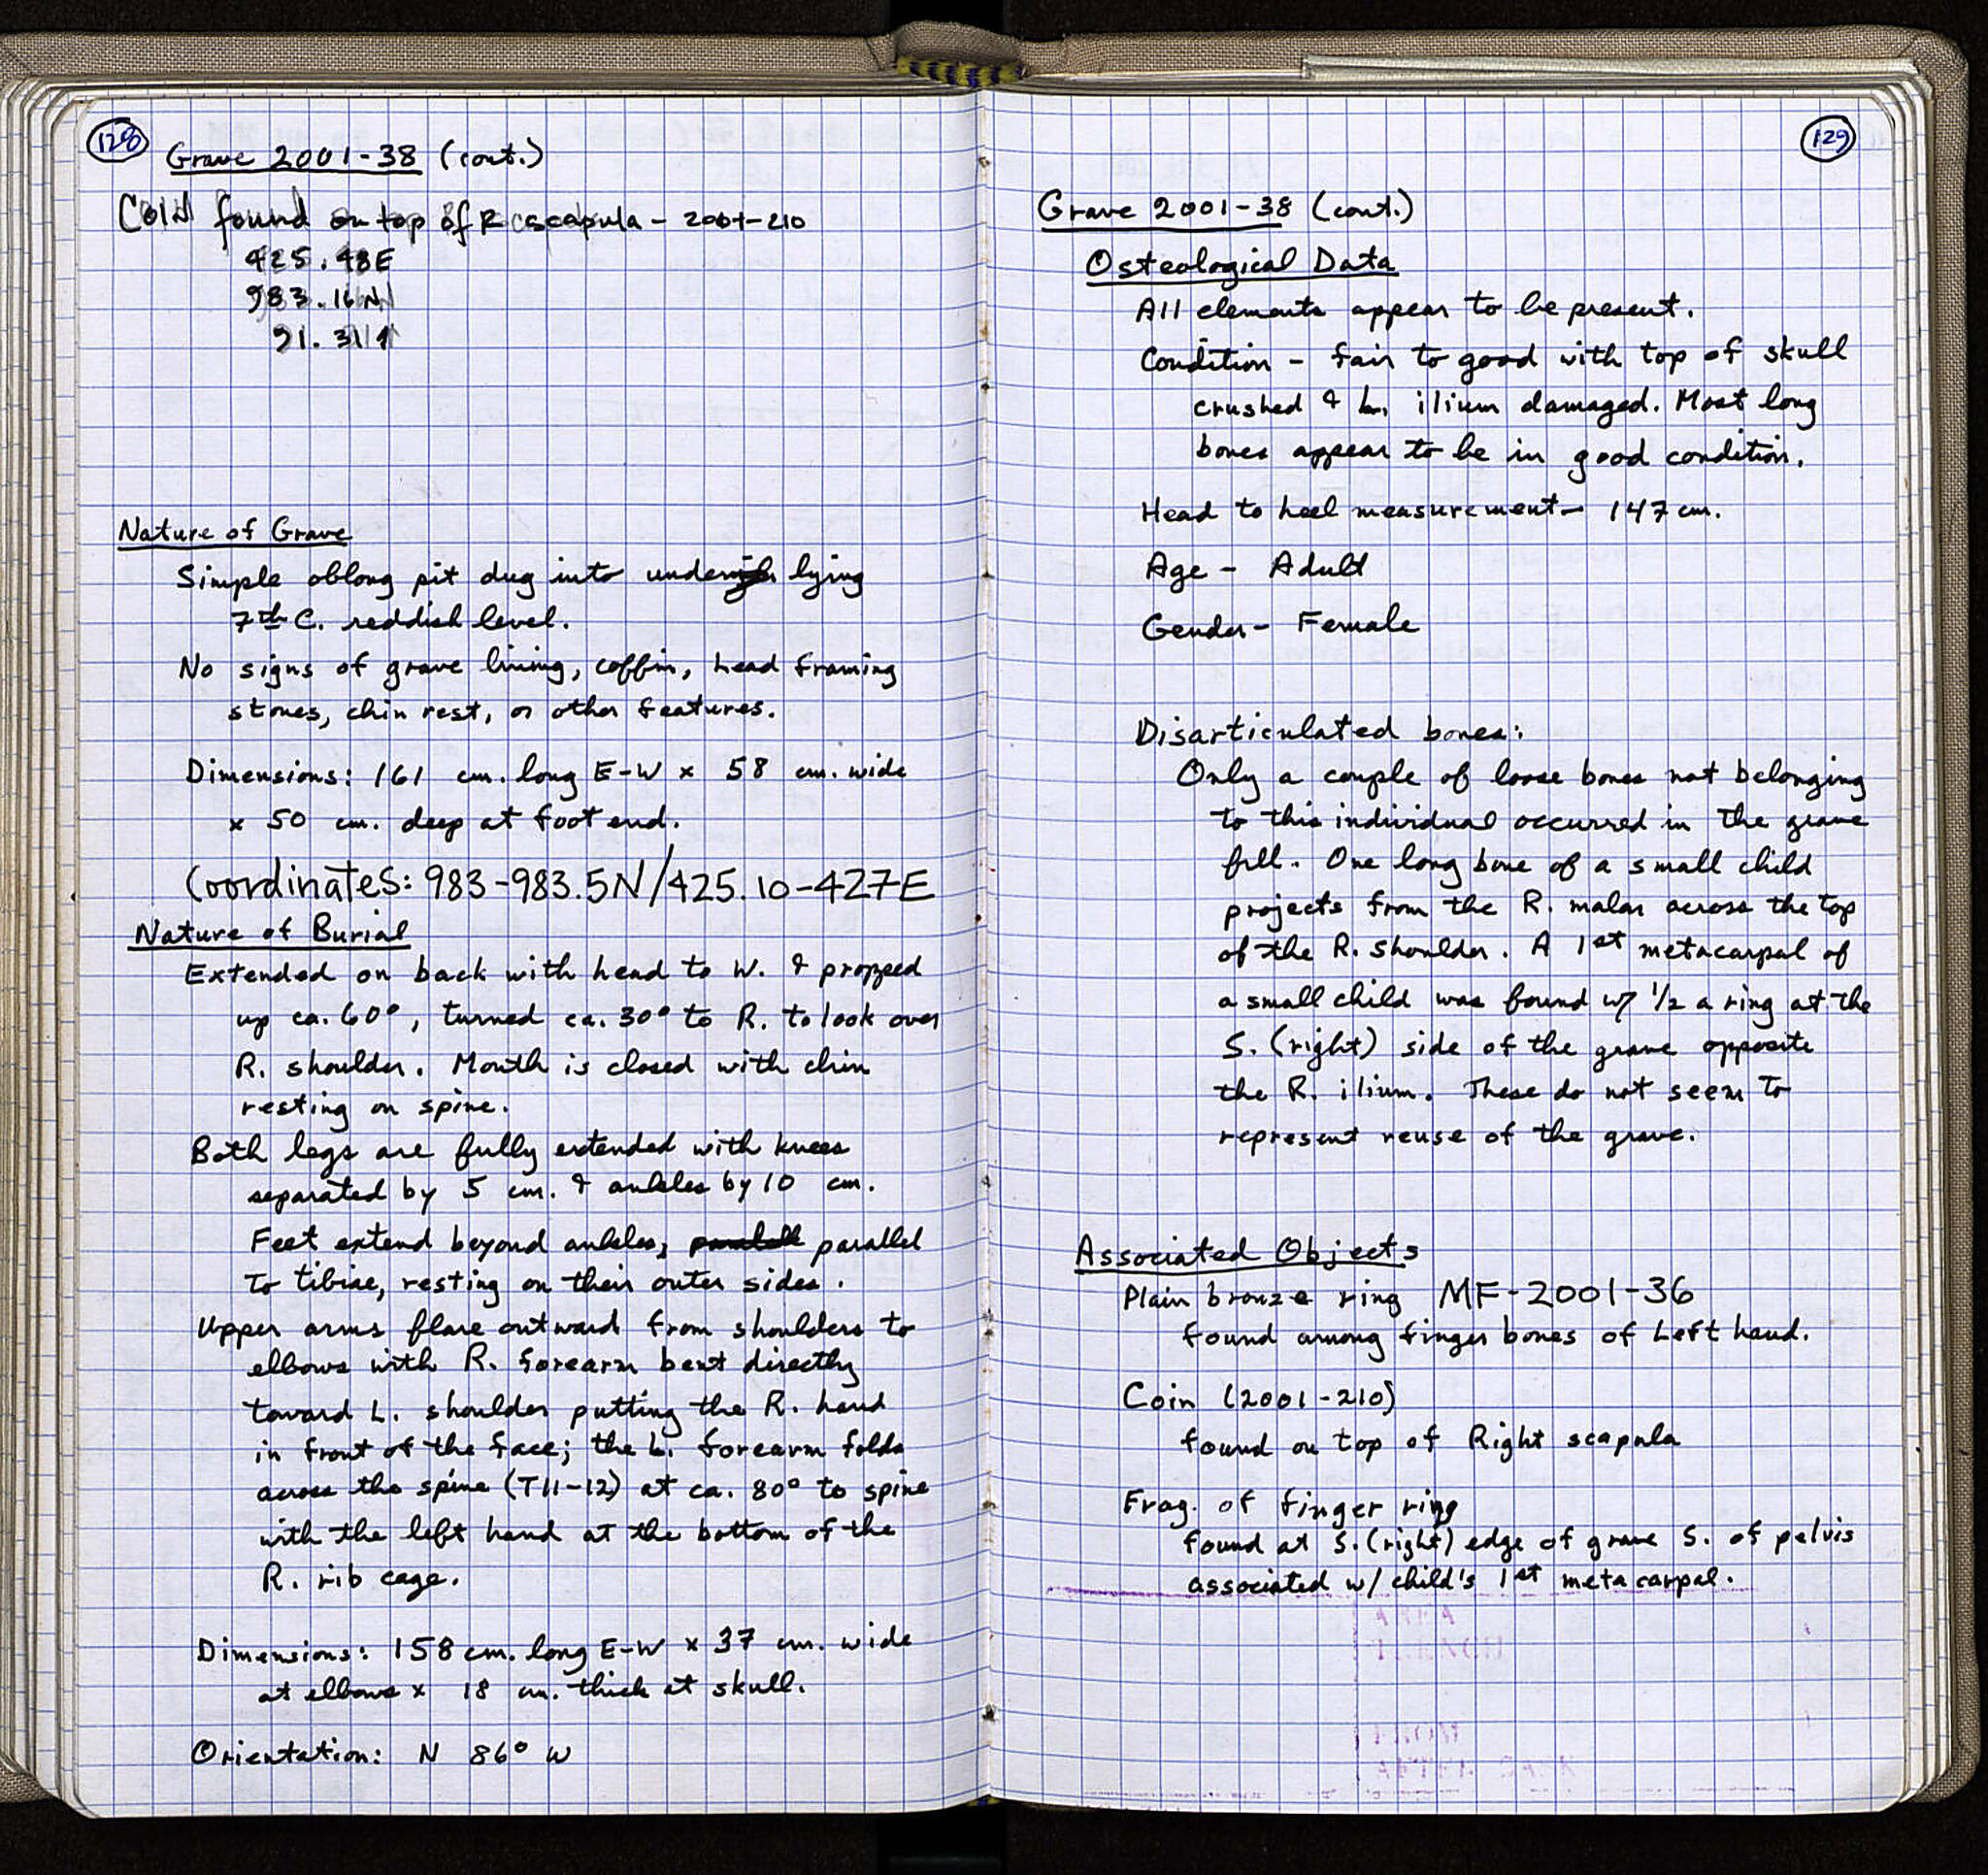 128
Grave 2001-38 (cont.)
Coin found on top of R scapula - 2001-210
425.48E
983.16N
91.311
Nature of Grave
Simple oblong pit dug into under lying
7th C. reddish level.
No signs of grave lining, coffin, head framing
stones, chin rest, or other features.
Dimensions: 161 cm. long E-W x 58 cm. wide
x 50 cm. deep at foot end.
Coordinates: 983-983.5N/425.10-427E
Nature of Burial
Extended on back with head to W. & propped
up ca. 60°, turned ca. 30° to R. to look over
R. shoulder. Mouth is closed with chin
resting on spine.
Both legs are fully extended with knees
separated by 5 cm. & ankles by 10 cm.
Feet extend beyond ankles, parallel
to tibiae, resting on their outer sides.
Upper arms flare outward from shoulders to
elbows with R. forearm bent directly
toward L. shoulder putting the R. hand
in front of the face; the L. forearm folds
across the spine (T11-12) at ca. 80° to spine
with the left hand at the bottom of the
R. rib cage.
Dimensions: 158 cm. long E-W x 37 cm. wide
at elbows x 18 cm. thick at skull.
Orientation: N 86° W
129
Grave 2001-38 (cont.)
Osteological Data
All elements appear to be present.
Condition - fair to good with top of skull
crushed & L. ilium damaged. Most long
bones appear to be in good condition.
Head to heel measurement - 147 cm.
Age - Adult
Gender - Female
Disarticulated bones:
Only a couple of loose bones not belonging
to this individual occurred in the grave
fill. One long bone of a small child
projects from the R. malar across the top
of the R. shoulder. A 1st metacarpal of
a small child was found w/ 1/2 a ring at the
S. (right) side of the grave opposite
the R. ilium. These do not seem to
represent reuse of the grave.
Associated Objects
Plain bronze ring MF-2001-36
found among finger bones of Left hand.
Coin (2001-210)
found on top of Right scapula
Frag. of finger ring
found at S. (right) edge of grave S. of pelvis
associated w/ child's 1st metacarpal.